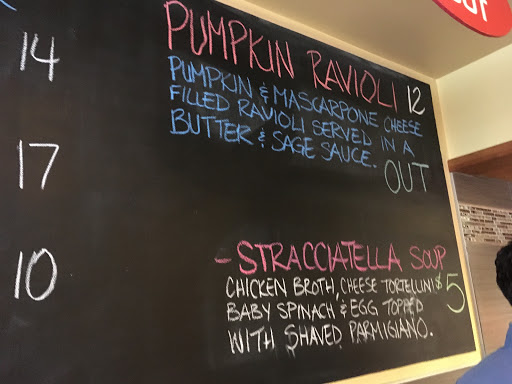 14
17
10
PUMPKIN RAVIOLI 12
PUMPKIN & MASCARPONE CHEESE
FILLED RAVIOLI SERVED IN A
BUTTER & SAGE SAUCE.
OUT
- STRACCIATELLA SOUP
CHICKEN BROTH, CHEESE TORTELLINI $5
BABY SPINACH & EGG TOPPED
WITH SHAVED PARMIGIANO.